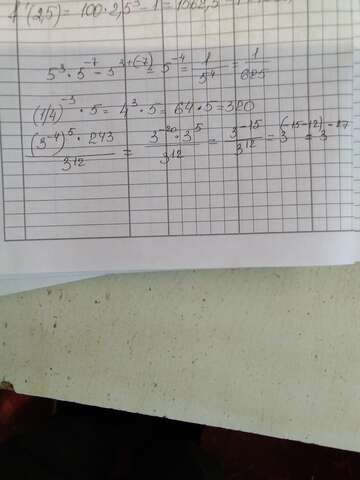 (2,5) = 100 · 2,5³ - 1 =
5³ · 5⁻⁷ = 5³⁺⁽⁻⁷⁾ = 5⁻⁴ = 1/5⁴ = 1/625
(1/4)⁻³ · 5 = 4³ · 5 = 64 · 5 = 320
(3⁻⁴)⁵ · 243 / 3¹² = 3⁻²⁰ · 3⁵ / 3¹² = 3⁻¹⁵ / 3¹² = 3⁽⁻¹⁵⁻¹²⁾ = 3⁻²⁷